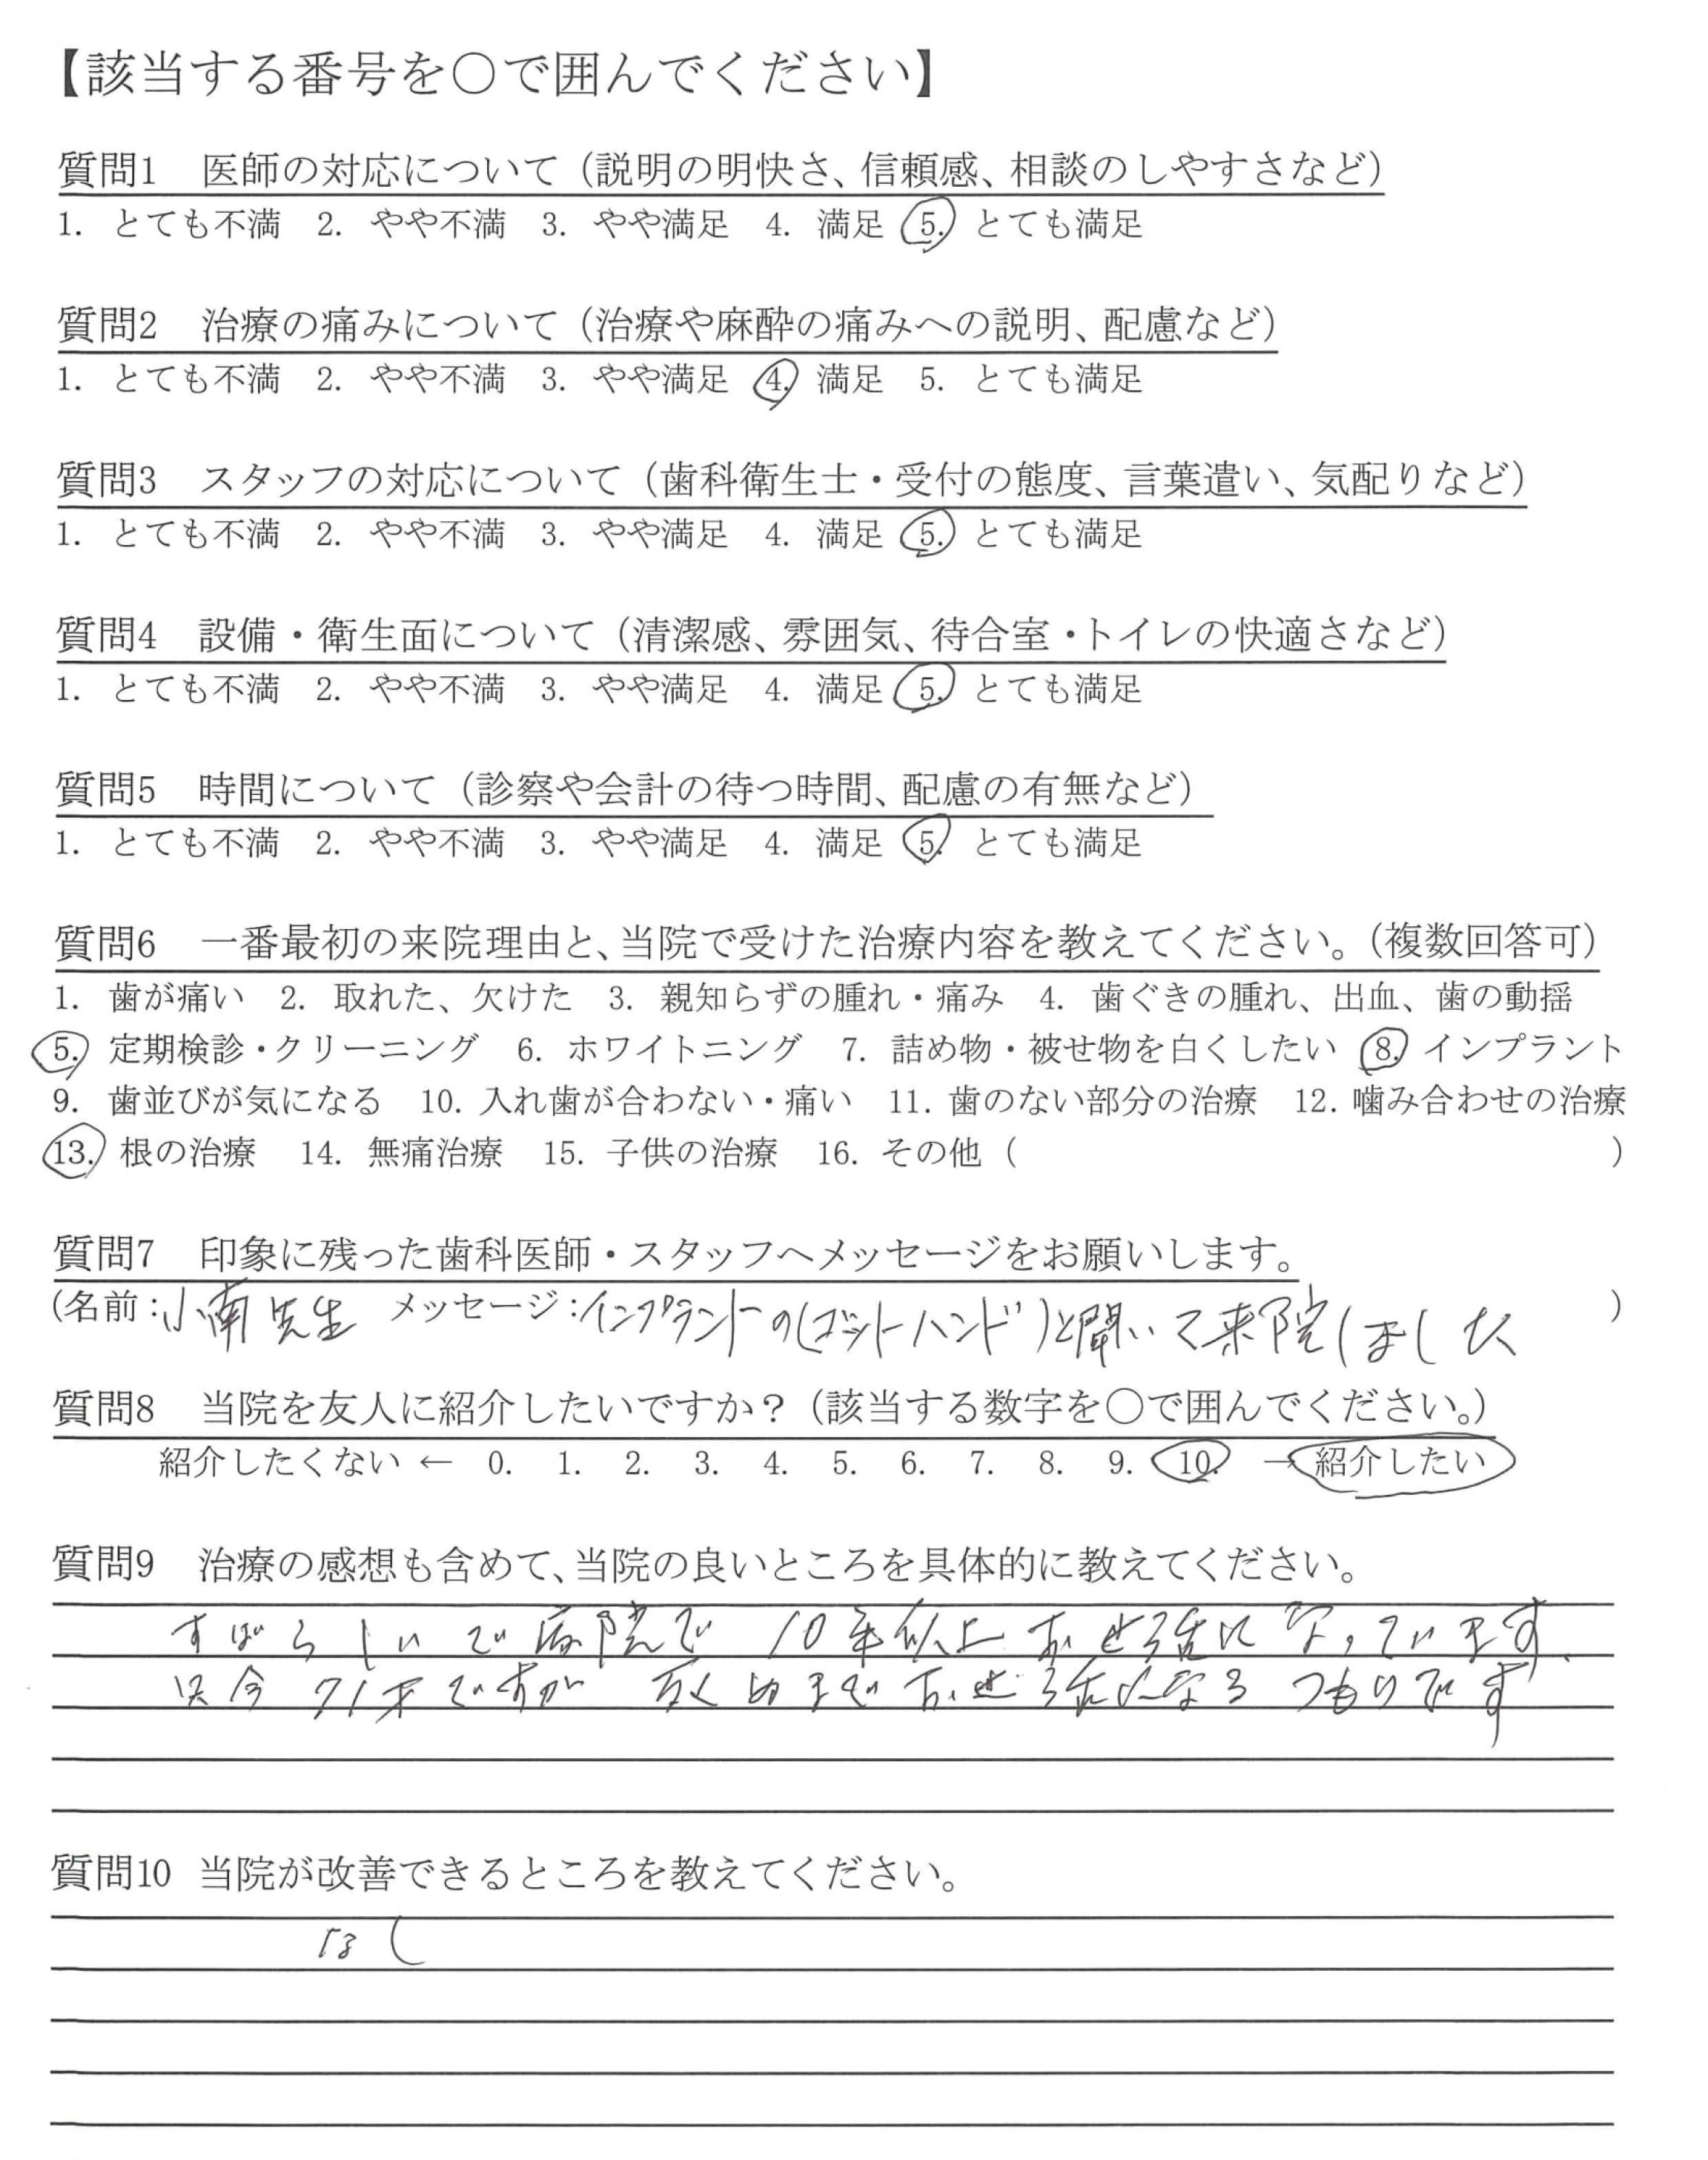 【該当する番号を○で囲んでください】
質問1　医師の対応について（説明の明快さ、信頼感、相談のしやすさなど）
1. とても不満　2. やや不満　3. やや満足　4. 満足　5. とても満足
質問2　治療の痛みについて（治療や麻酔の痛みへの説明、配慮など）
1. とても不満　2. やや不満　3. やや満足　4. 満足　5. とても満足
質問3　スタッフの対応について（歯科衛生士・受付の態度、言葉遣い、気配りなど）
1. とても不満　2. やや不満　3. やや満足　4. 満足　5. とても満足
質問4　設備・衛生面について（清潔感、雰囲気、待合室・トイレの快適さなど）
1. とても不満　2. やや不満　3. やや満足　4. 満足　5. とても満足
質問5　時間について（診察や会計の待つ時間、配慮の有無など）
1. とても不満　2. やや不満　3. やや満足　4. 満足　5. とても満足
質問6　一番最初の来院理由と、当院で受けた治療内容を教えてください。（複数回答可）
1. 歯が痛い　2. 取れた、欠けた　3. 親知らずの腫れ・痛み　4. 歯ぐきの腫れ、出血、歯の動揺
5. 定期検診・クリーニング　6. ホワイトニング　7. 詰め物・被せ物を白くしたい　8. インプラント
9. 歯並びが気になる　10. 入れ歯が合わない・痛い　11. 歯のない部分の治療　12. 噛み合わせの治療
13. 根の治療　14. 無痛治療　15. 子供の治療　16. その他（　）
質問7　印象に残った歯科医師・スタッフへメッセージをお願いします。
（名前：小南先生　メッセージ：インプラントの(ゴットハンド)と聞いて来院しました　）
質問8　当院を友人に紹介したいですか？（該当する数字を○で囲んでください。）
紹介したくない ← 0. 1. 2. 3. 4. 5. 6. 7. 8. 9. 10. → 紹介したい
質問9　治療の感想も含めて、当院の良いところを具体的に教えてください。
すばらしいで病院で 10年以上 お世話になっています、
只今 71才ですが 死ぬまでお世話になる つもりです
質問10 当院が改善できるところを教えてください。
なし